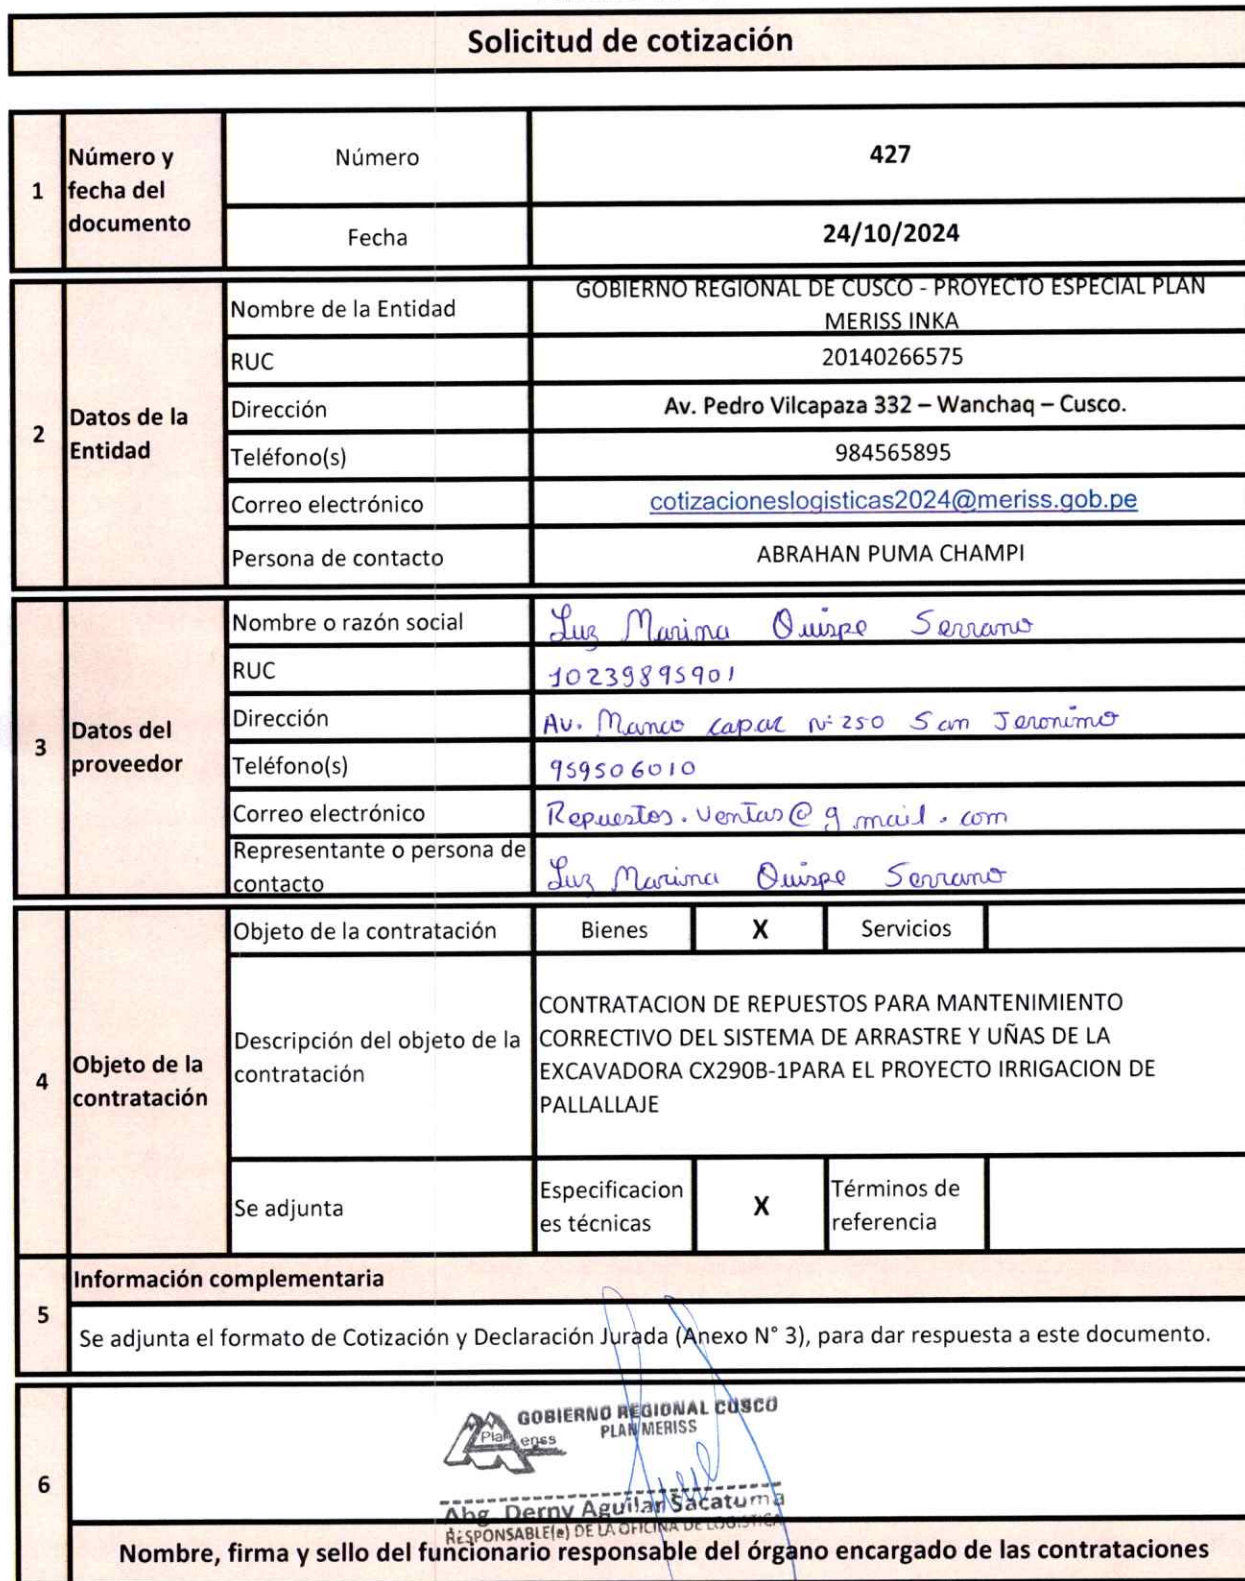 Solicitud de cotización
1
Número y
fecha del
documento
Número
427
Fecha
24/10/2024
2
Datos de la
Entidad
Nombre de la Entidad
GOBIERNO REGIONAL DE CUSCO - PROYECTO ESPECIAL PLAN
MERISS INKA
RUC
20140266575
Dirección
Av. Pedro Vilcapaza 332 – Wanchaq – Cusco.
Teléfono(s)
984565895
Correo electrónico
cotizacioneslogisticas2024@meriss.gob.pe
Persona de contacto
ABRAHAN PUMA CHAMPI
3
Datos del
proveedor
Nombre o razón social
Luz Marina Quispe Serrano
RUC
10239895901
Dirección
Av. Manco capac Nº 250 San Jeronimo
Teléfono(s)
959506010
Correo electrónico
Repuestos.ventas@gmail.com
Representante o persona de
contacto
Luz Marina Quispe Serrano
4
Objeto de la
contratación
Objeto de la contratación
Bienes X Servicios
Descripción del objeto de la
contratación
CONTRATACION DE REPUESTOS PARA MANTENIMIENTO
CORRECTIVO DEL SISTEMA DE ARRASTRE Y UÑAS DE LA
EXCAVADORA CX290B-1PARA EL PROYECTO IRRIGACION DE
PALLALLAJE
Se adjunta
Especificacion
es técnicas
X
Términos de
referencia
5
Información complementaria
Se adjunta el formato de Cotización y Declaración Jurada (Anexo N° 3), para dar respuesta a este documento.
6
GOBIERNO REGIONAL CUSCO
PLAN MERISS
Plan
eriss
Abg. Derny Aguilar Sacatuma
RESPONSABLE(e) DE LA OFICINA DE LOGISTICA
Nombre, firma y sello del funcionario responsable del órgano encargado de las contrataciones